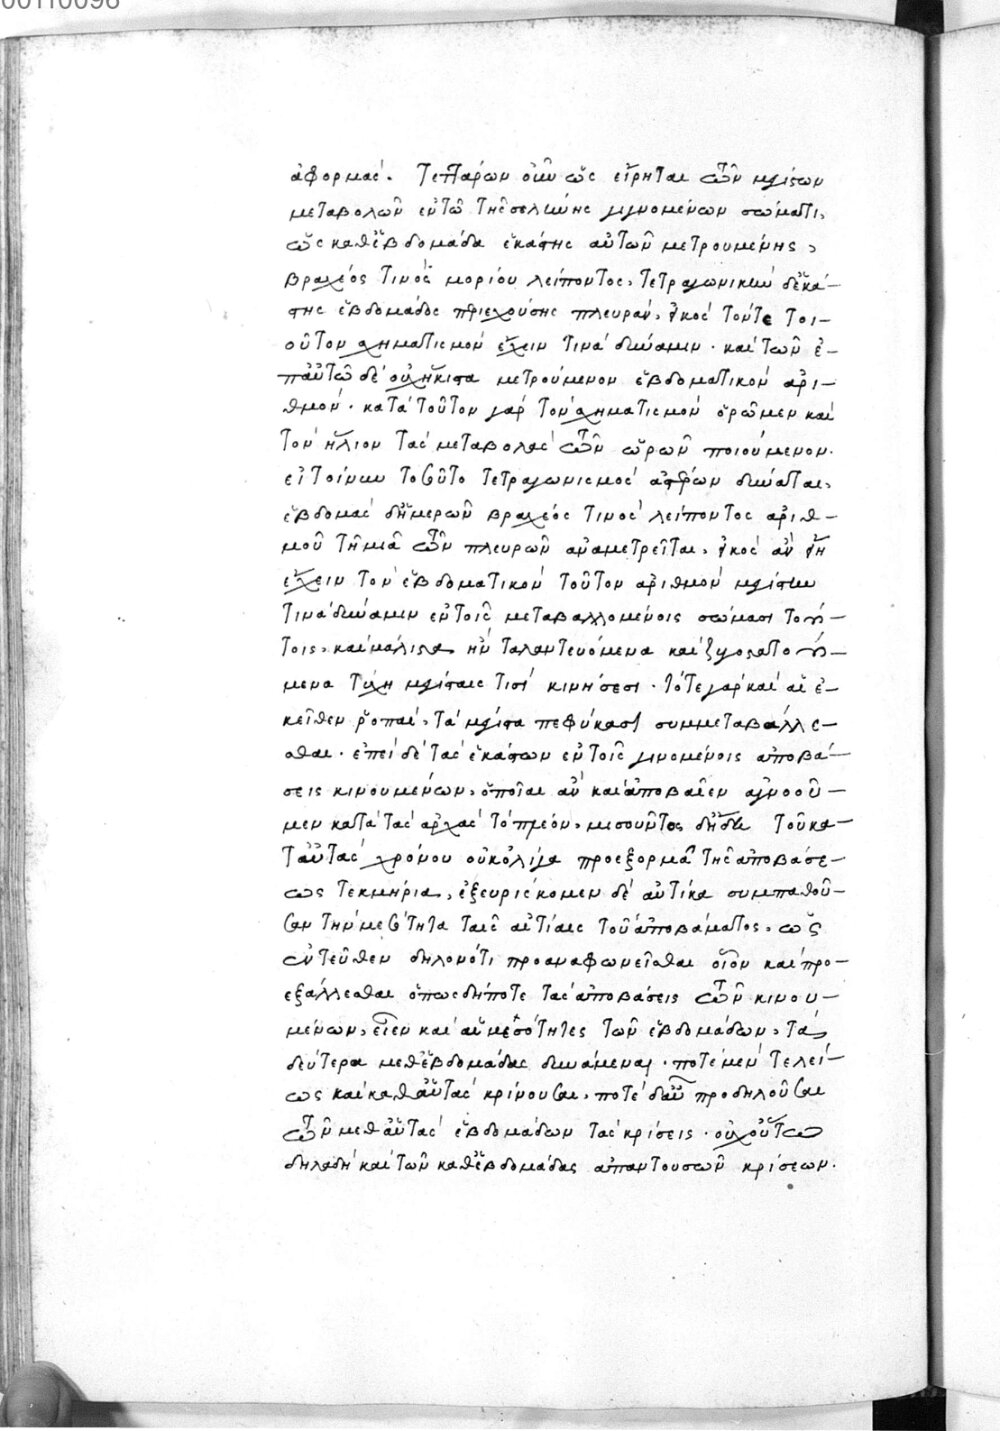 00110098
ἀφορμάς. τεττάρων οὖν ὡς εἴρηται τῶν μεγίστων
μεταβολῶν ἐν τῶ τῆς σελήνης γινομένων σώματι,
ὡς καθ' ἑβδομάδα ἑκάστης αὐτῶν μετρουμένης,
βραχέος τινὸς μορίου λείποντος, τετραγωνικὴν δ' ἑκά-
στης ἑβδομάδος περιεχούσης πλευρὰν, εἰκὸς τόν τε τοι-
οῦτον σχηματισμὸν ἔχειν τινὰ δύναμιν. καὶ τῶν ἐ-
π' αὐτῶ δὲ οὐχ ἥκιστα μετρούμενον ἑβδοματικὸν ἀρι-
θμόν. κατὰ τοῦτον γὰρ τὸν σχηματισμὸν ὁρῶμεν καὶ
τὸν ἥλιον τὰς μεταβολὰς τῶν ὡρῶν ποιούμενον.
εἰ τοίνυν τοσοῦτο τετραγωνισμὸς ἀστέρων δύναται,
ἑβδομὰς δ' ἡμερῶν βραχέος τινὸς λείποντος ἀριθ-
μοῦ τῆ μιᾶ τῶν πλευρῶν ἀναμετρεῖται, εἰκὸς ἂν εἴη
ἔχειν τὸν ἑβδοματικὸν τοῦτον ἀριθμὸν μεγίστην
τινὰ δύναμιν ἐν τοῖς μεταβαλλομένοις σώμασι τοιού-
τοις, καὶ μάλιστα ἢν ταλαντευόμενα καὶ ζυγοστατού-
μενα τύχη μεγίσταις τισὶ κινήσεσι. τότε γὰρ καὶ αἱ ἐ-
κεῖθεν ῥοπαὶ, τὰ μέγιστα πεφύκασι συμμεταβάλλε-
σθαι. ἐπεὶ δὲ τὰς ἑκάστων ἐν τοῖς γινομένοις ἀποβά-
σεις κινουμένων, ὁποῖαι ἂν καὶ ἀποβαῖεν ἀγνοοῦ-
μεν κατὰ τὰς ἀρχὰς τὸ πλέον, μεσοῦντος δ' ἤδη τοῦ κα-
τ' αὐτὰς χρόνου οὐκ ὀλίγα προεξορμᾶ τῆς ἀποβάσε-
ως τεκμήρια, ἐξευρίσκομεν δὲ αὐτίκα συμπαθοῦ-
σαν τὴν μεσότητα ταῖς αἰτίαις τοῦ ἀποβάματος, ὡς
ἐντεῦθεν δηλονότι προαναφωνεῖσθαι οἷον καὶ προ-
εξάλλεσθαι ὁπωσδήποτε τὰς ἀποβάσεις τῶν κινου-
μένων, εἶεν καὶ αἱ μεσότητες τῶν ἑβδομάδων, τὰ
δεύτερα μεθ' ἑβδομάδας δυνάμεναι. ποτὲ μὲν τελεί-
ως καὶ καθ' αὑτὰς κρίνουσαι, ποτὲ δ' αὖ προδηλοῦσαι
τῶν μεθ' αὑτὰς ἑβδομάδων τὰς κρίσεις. οὐχ οὕτω
δηλαδὴ καὶ τῶν καθ' ἑβδομάδας ἀπαντουσῶν κρίσεων.